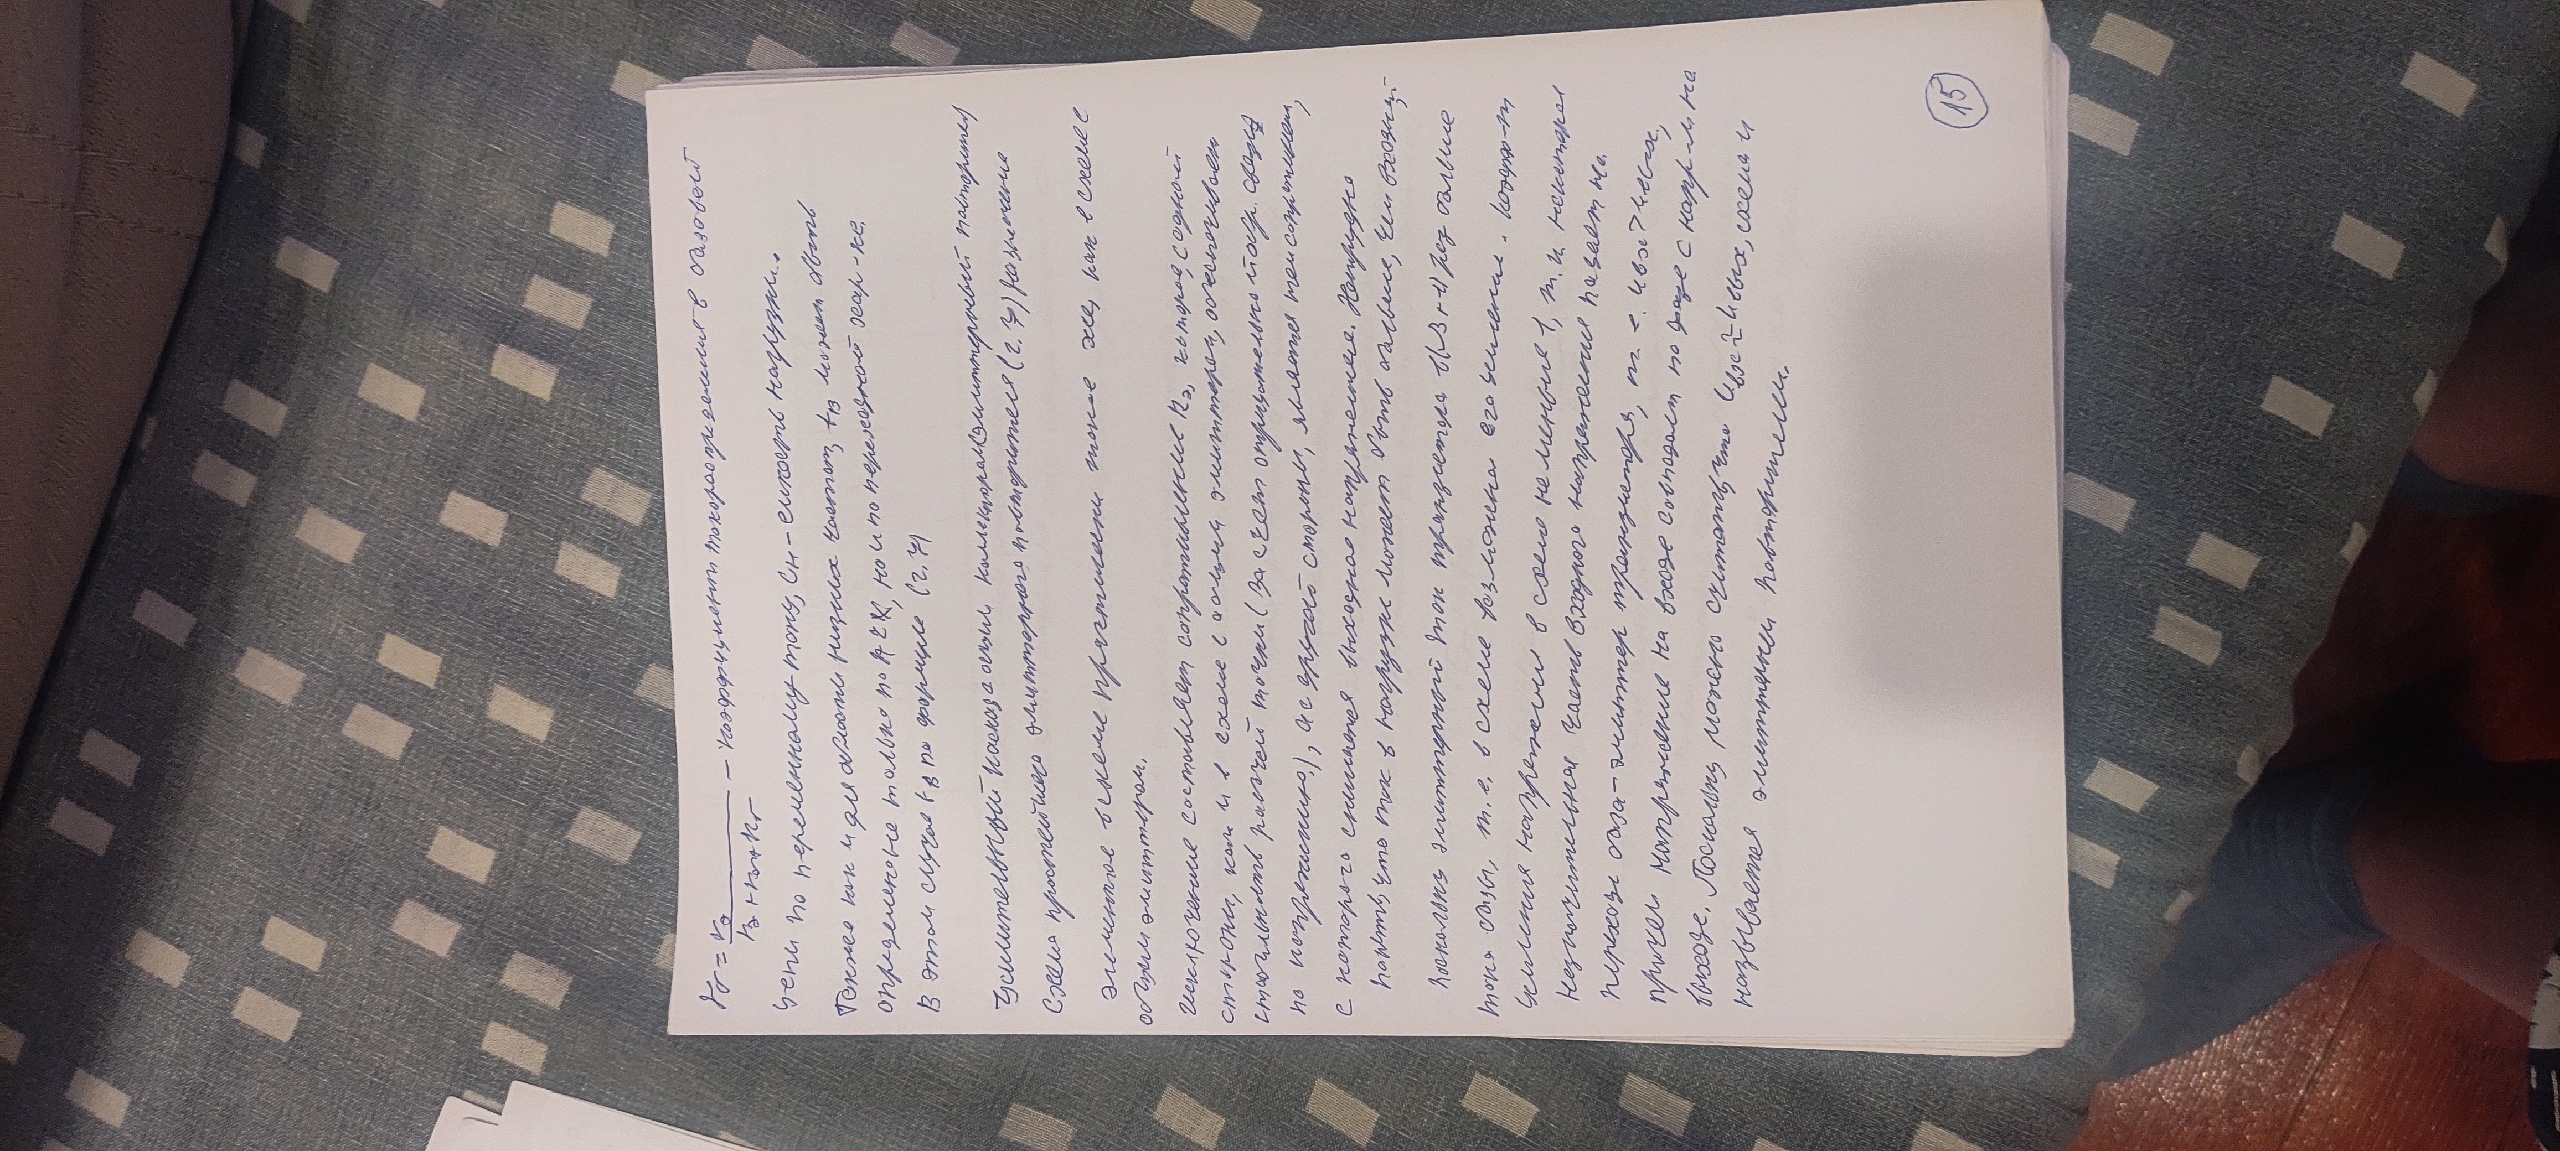 γσ = Rэ / Rэ + Rб + Rг – коэффициент токораспределения в базовой
цепи по переменному току, Cн – емкость нагрузки.
Также как и для области низких частот, fв может быть
определено только по АЧХ, но и по переходной хар-ке.
В этом случае fв по формуле (2.7)
Усилительный каскад с общим коллектором (эмиттерный повторитель)
Схема простейшего эмиттерного повторителя (2.7) назначение
элементов в схеме практически такое же, как в схеме с
общим эмиттером.
Исключение составляет сопротивление Rэ, которое, с одной
стороны, как и в схеме с общим эмиттером, обеспечивает
стабильность рабочей точки (за счет отрицательной обр. связи
по напряжению), а с другой стороны, является тем сопротивлением,
с которого снимается выходное напряжение. Нетрудно
понять, что ток в нагрузке может быть больше, чем входной,
поскольку эмиттерный ток транзистора в (β+1) раз больше
тока базы, т.е. в схеме возможно его усиление. Коэфф-т
усиления напряжения в схеме не меньше 1, т.к. некоторая
незначительная часть входного напряжения падает на
переходе база-эмиттер транзистора, т.е. Uвх > Uвых,
причем напряжение на входе совпадает по фазе с напр-м на
выходе. Поскольку можно считать, что Uвх ≈ Uвых, схема и
называется эмиттерным повторителем.
15